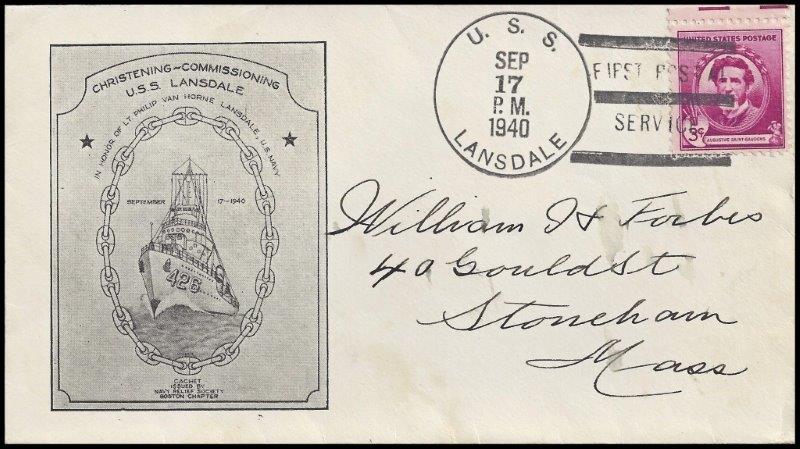 CHRISTENING-COMMISSIONING
U.S.S. LANSDALE
IN HONOR OF LT PHILIP VAN HORNE LANSDALE, U.S. NAVY
SEPTEMBER 17-1940
426
CACHET
ISSUED BY
NAVY RELIEF SOCIETY
BOSTON CHAPTER
U. S. S.
SEP
17
P.M.
1940
LANSDALE
FIRST POST
SERVICE
UNITED STATES POSTAGE
3¢
AUGUSTUS SAINT-GAUDENS
William H Forbes
40 Gould St
Stoneham
Mass